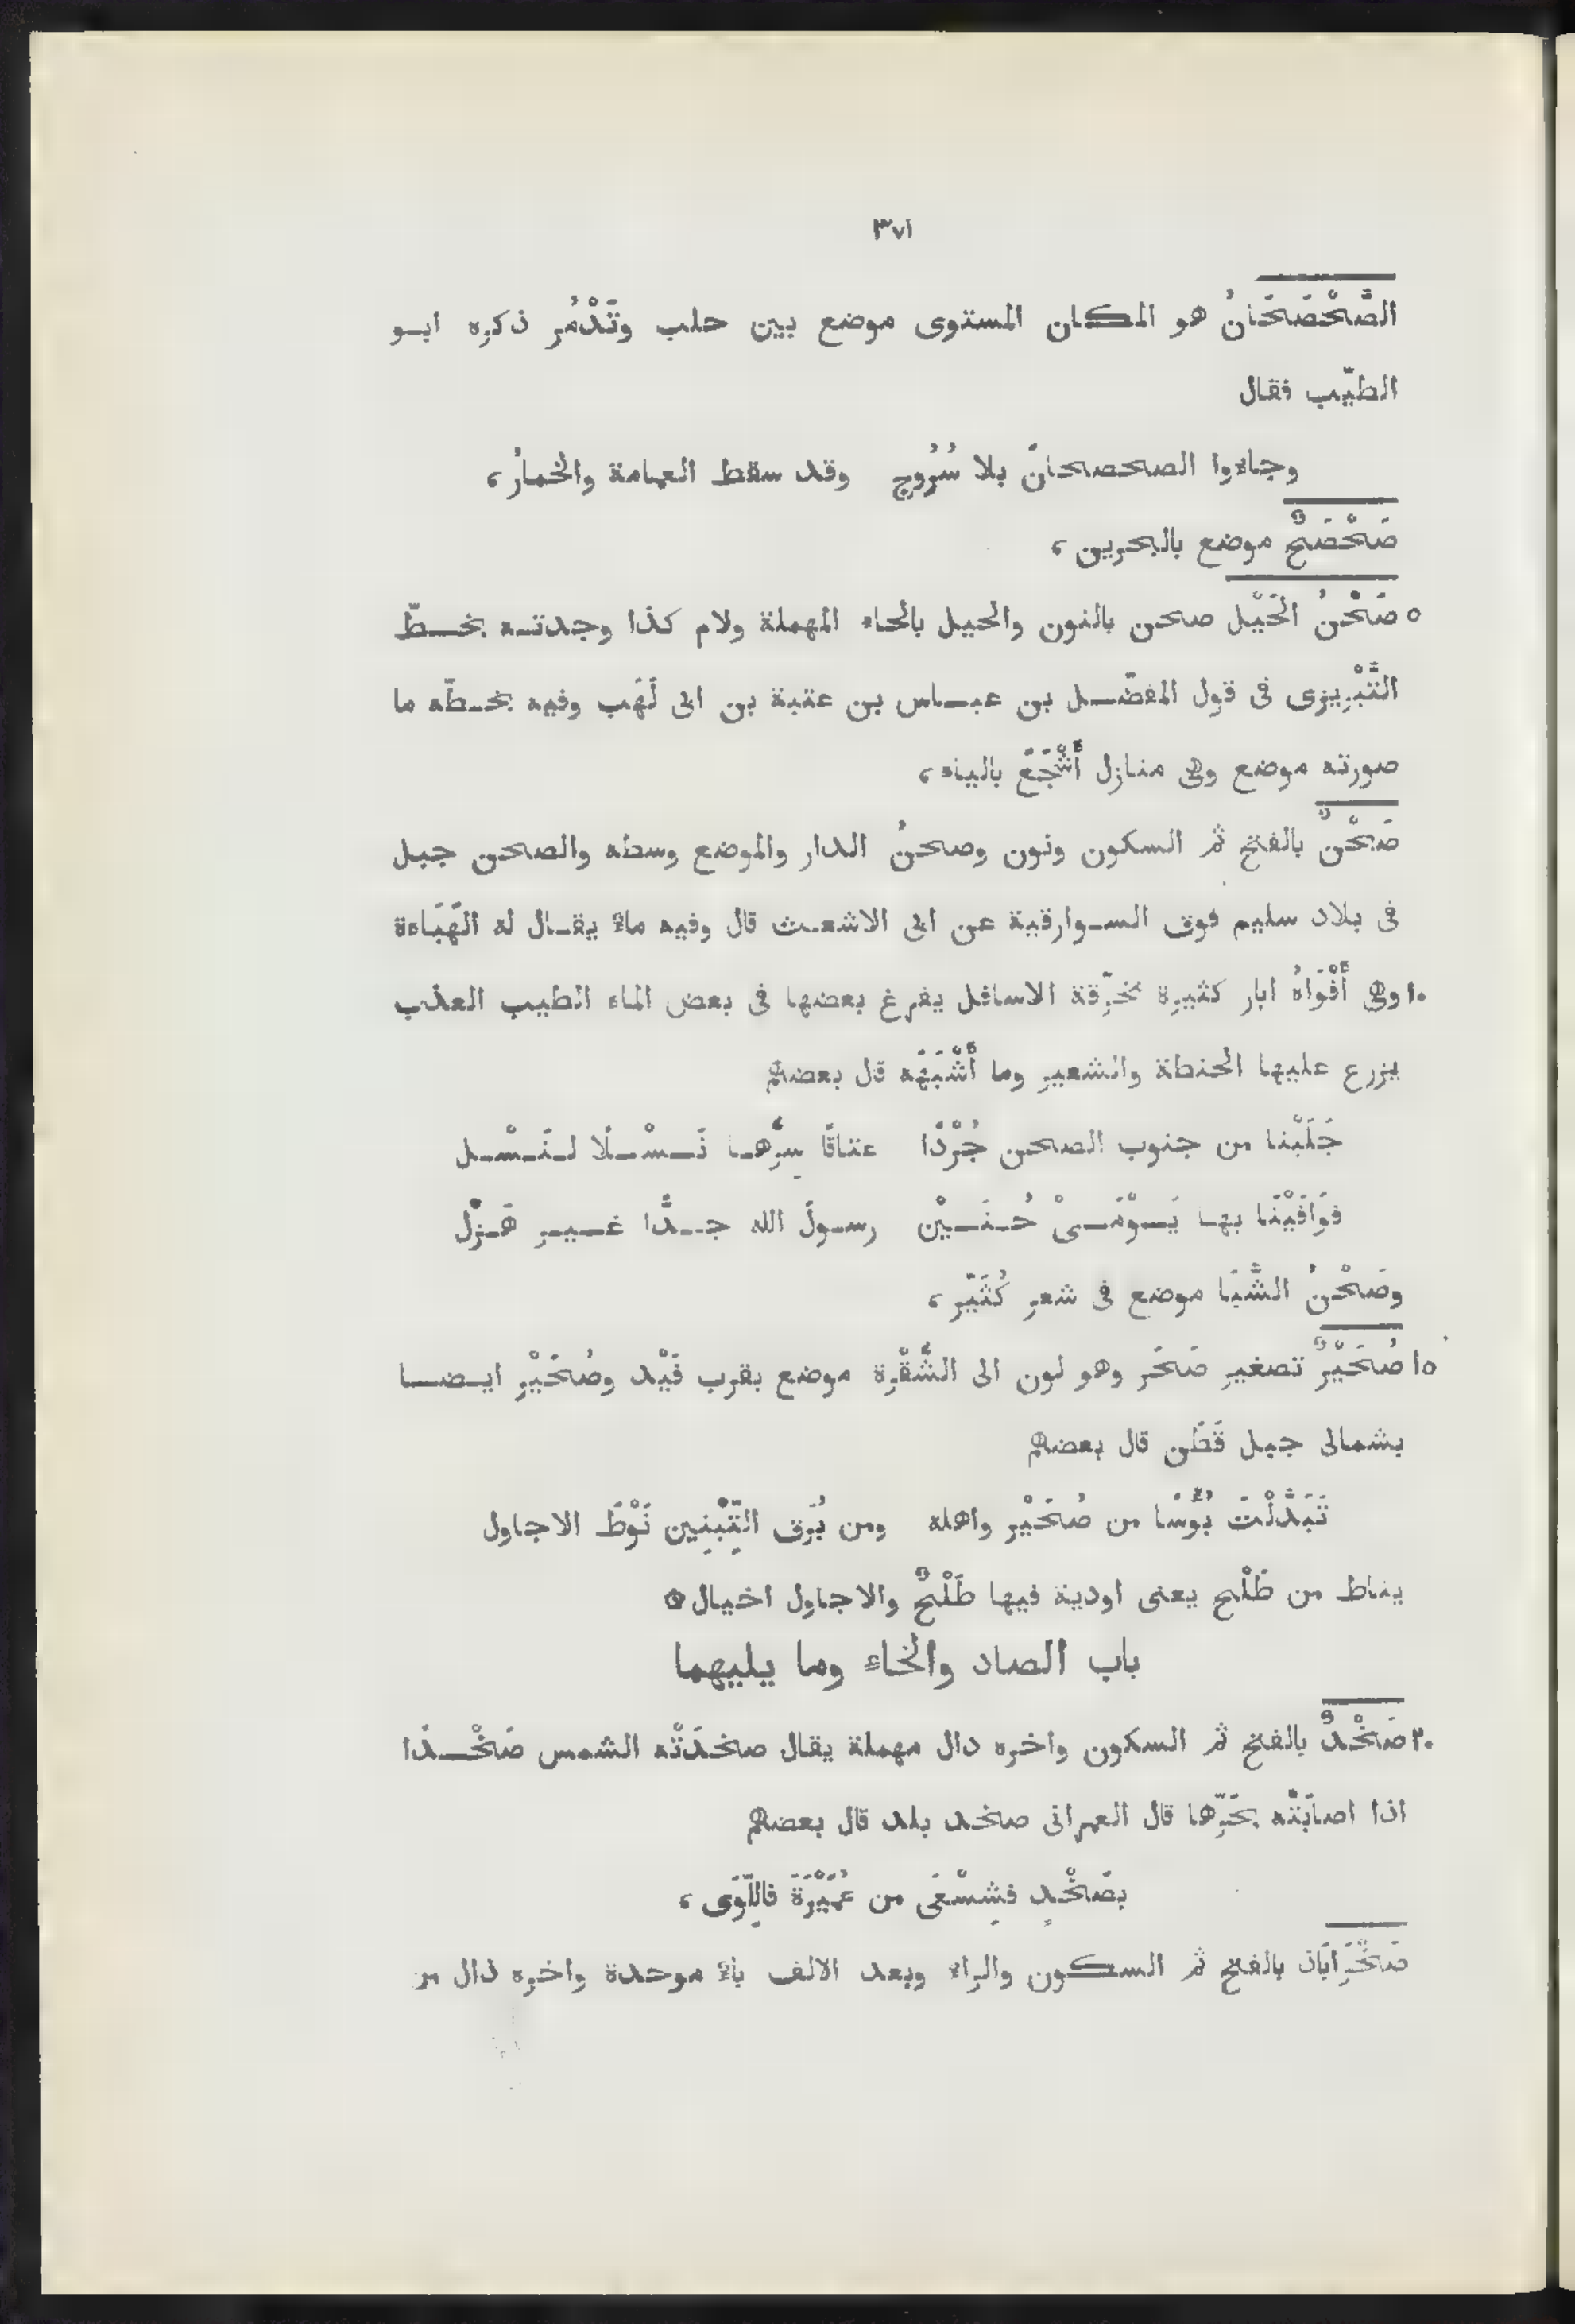 ٣٧١
الصَّحْصَحَانُ هو المكان المستوى موضع بين حلب وتَدْمُر ذكره ابو
الطيّب فقال
وجاءوا الصحصحانَ بلا سُرُوج وقد سقط العمامة والخمارُ،
صَحْصَحٌ موضع بالبحرين،
٥ صَحْنُ الحَيْل صحن بالنون والحيل بالحاء المهملة ولام كذا وجدته بخطّ
التَّبْرِيزى فى قول المفضّل بن عباس بن عتبة بن ابى لَهَب وفيه بخطّه ما
صورته موضع وهى منازل أَشْجَعَ بالياء،
صَحْنٌ بالفتح ثم السكون ونون وصحنُ الدار والموضع وسطه والصحن جبل
فى بلاد سليم فوق السوارقية عن ابى الاشعث قال وفيه ماء يقال له الهَبَاءة
١٠ وهى أَفْوَاهُ ابار كثيرة مخرّقة الاسافل يفرغ بعضها فى بعض الماء الطيب العذب
يزرع عليها الحنطة والشعير وما أَشْبَهَه قال بعضهم
جَلَبْنا من جنوب الصحن جُرْدًا عتاقًا سِرُّها نَسْلًا لنَسْل
فوَافَيْنَا بها يَوْمَىْ حُنَيْن رسولَ الله جدًّا غير هَزْل
وصَحْنُ الشَّبَا موضع فى شعر كُثَيّر،
١٥ صُحَيْرٌ تصغير صَحَر وهو لون الى الشُّقْرة موضع بقرب فَيْد وصُحَيْر ايضا
بشمالى جبل قَطَن قال بعضهم
تَبَدَّلْتَ بُؤْسًا من صُحَيْر واهله ومن بُرَق التِّبْنِين نَوْطَ الاجاول
يناط من طَلْح يعنى اودية فيها طَلْحٌ والاجاول اخيال ۞
باب الصاد والخاء وما يليهما
٢٠ صَخْدٌ بالفتح ثم السكون واخره دال مهملة يقال صخدَتْه الشمس صَخْدًا
اذا اصابَتْه بحَرِّها قال العمرانى صخد بلد قال بعضهم
بصَخْدِ فشِسْعَى من عُمَيْرَةَ فاللِّوَى،
صَخْرَابَاذ بالفتح ثم السكون والراء وبعد الالف باء موحدة واخره ذال من